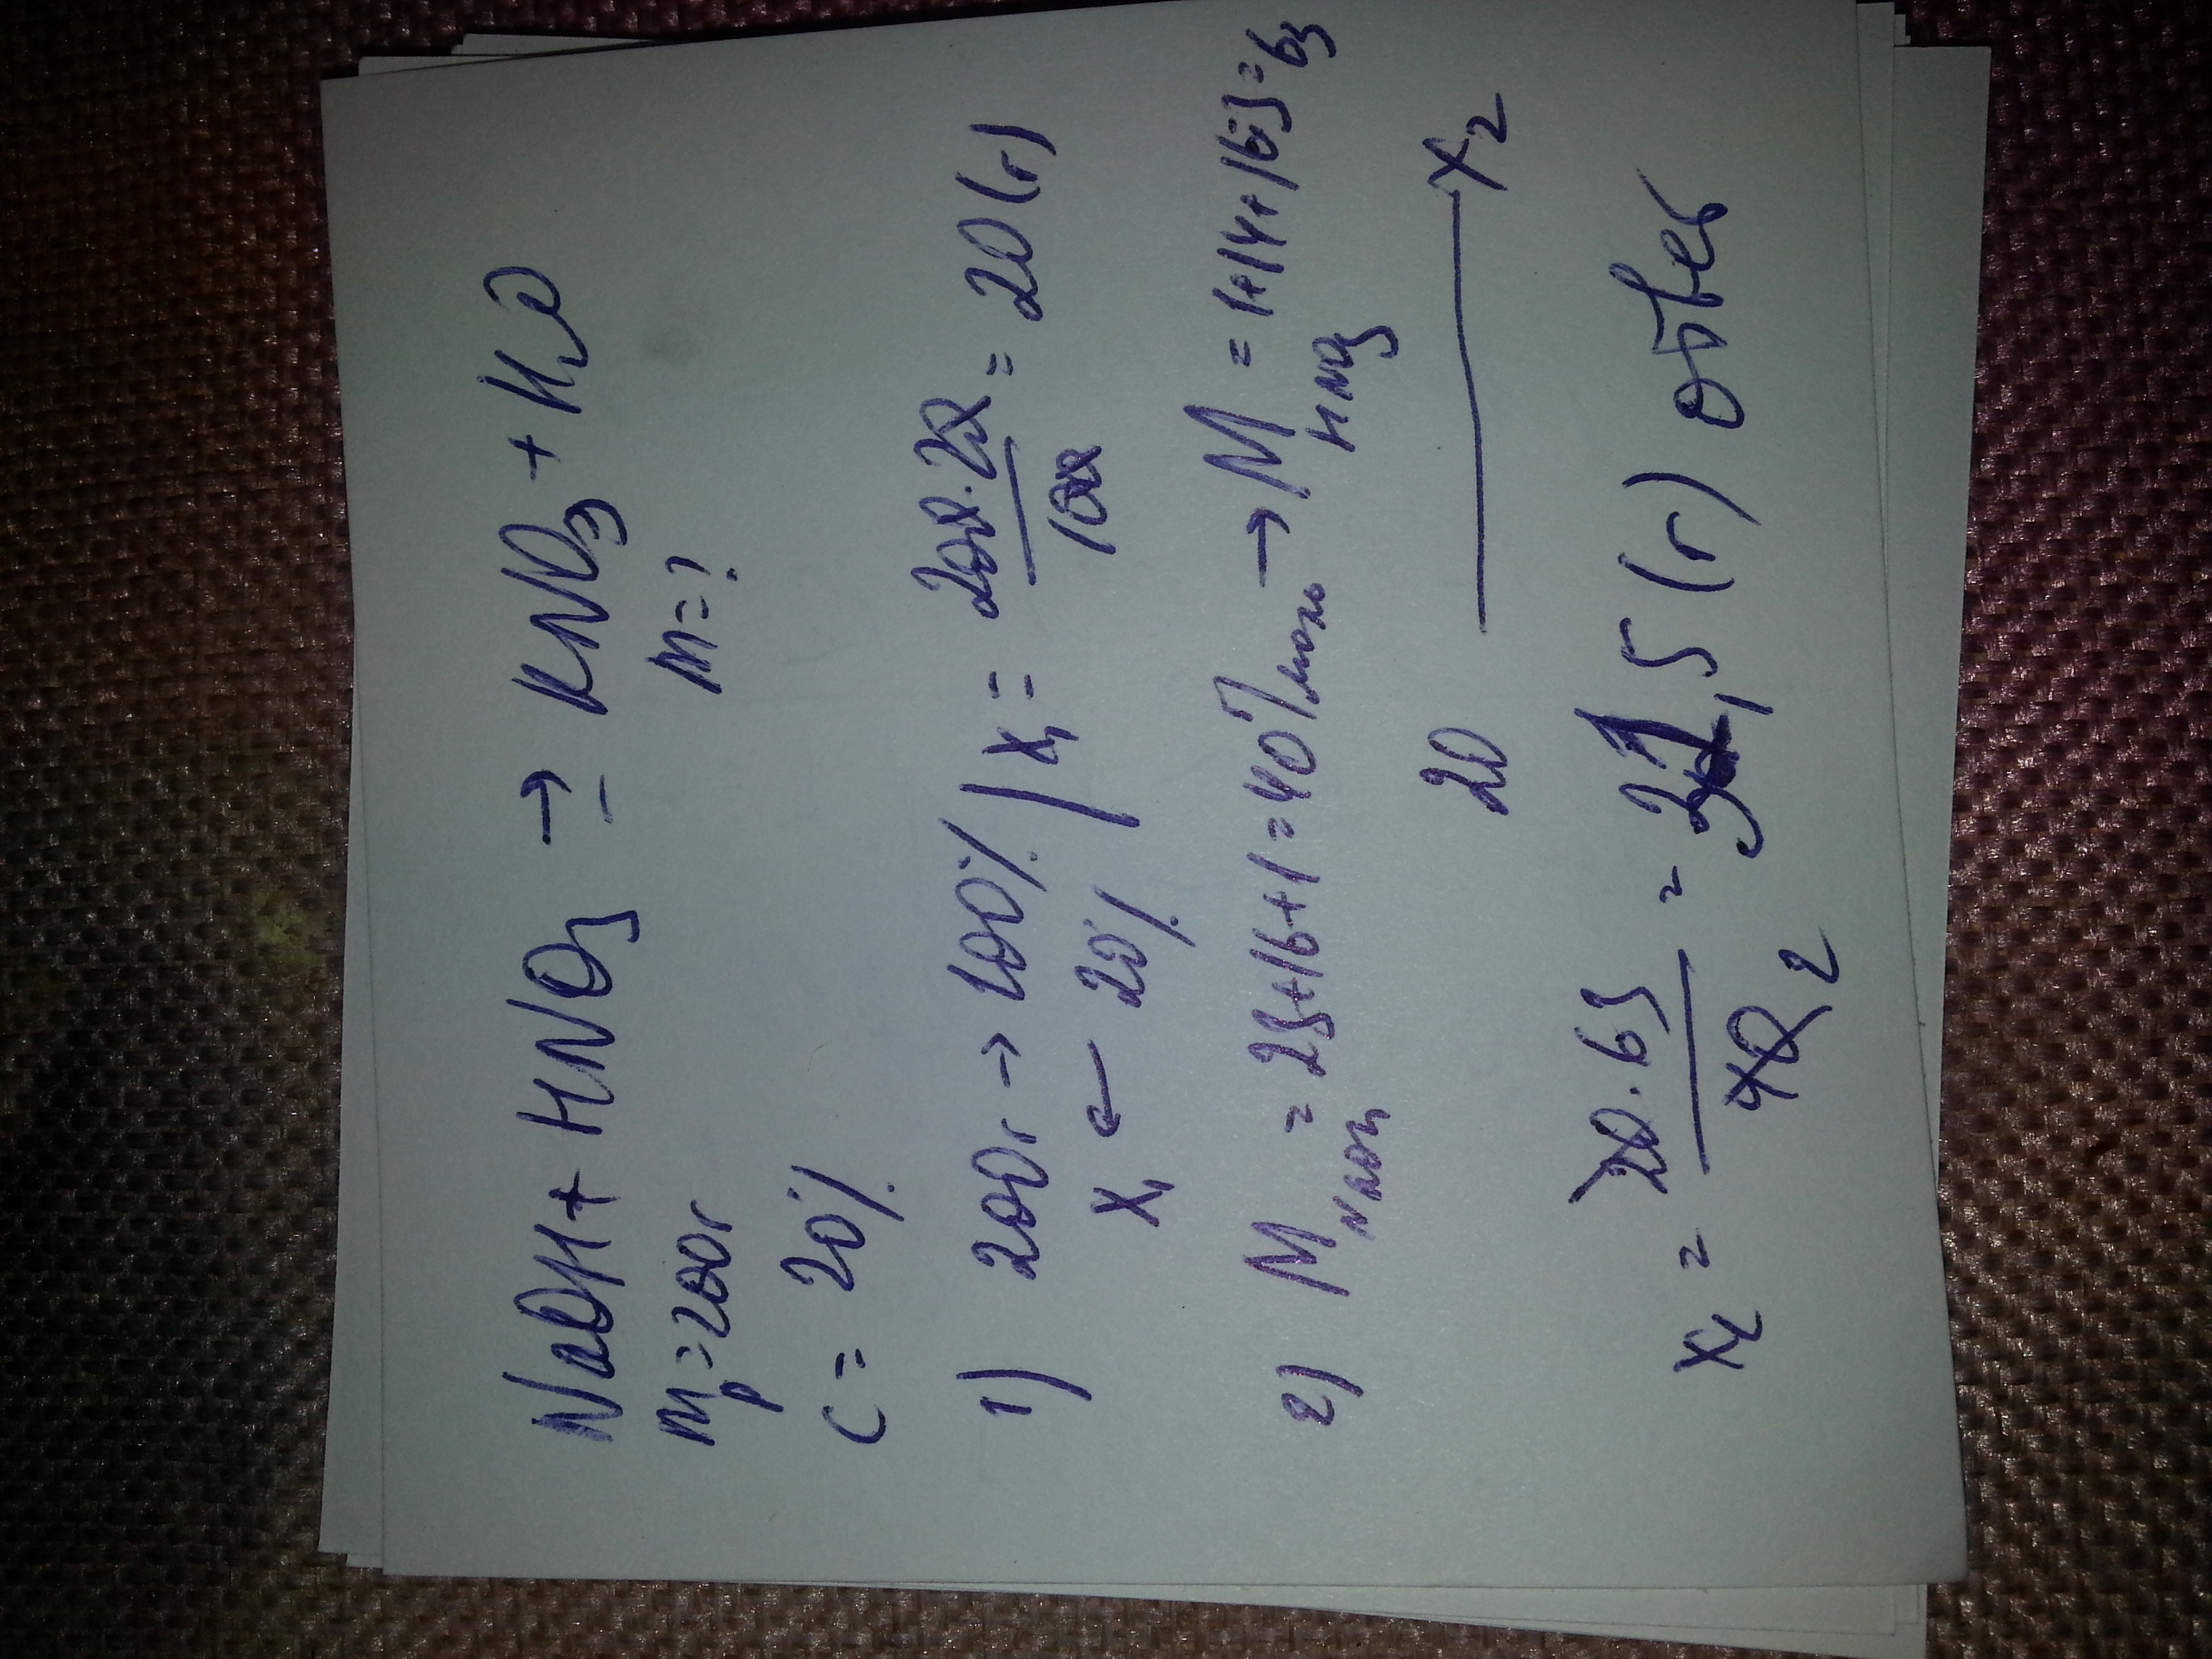 NaOH + HNO₃ → KNO₃ + H₂O
mр = 200г m = ?
C = 20%
1) 200г → 100% | x₁ = 200·20/100 = 20 (г)
x₁ ← 20%
2) M NaOH = 23+16+1 = 40 г/моль → M HNO₃ = 1+14+16·3 = 63
20 — x₂
x₂ = 20·63/40 2 = 31,5 (г) ответ